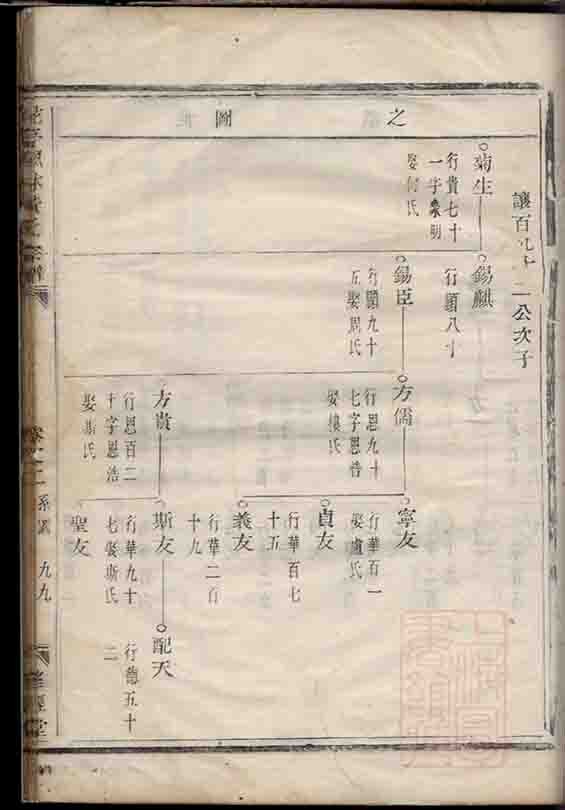 之 圖
讓百九十二公次子
菊生
行貴七十
一字彙明
娶何氏
錫麒
行顯八十
錫臣
行顯九十
五娶周氏
方儒
行恩九十
七字恩普
娶樓氏
方貴
行恩百二
十字恩浩
娶斯氏
寧友
行華百一
娶盧氏
貞友
行華百七
十五
義友
行華二百
十九
斯友
行華九十
七娶斯氏
聖友
配天
行德五十
二
宗譜
卷
系
九九
堂